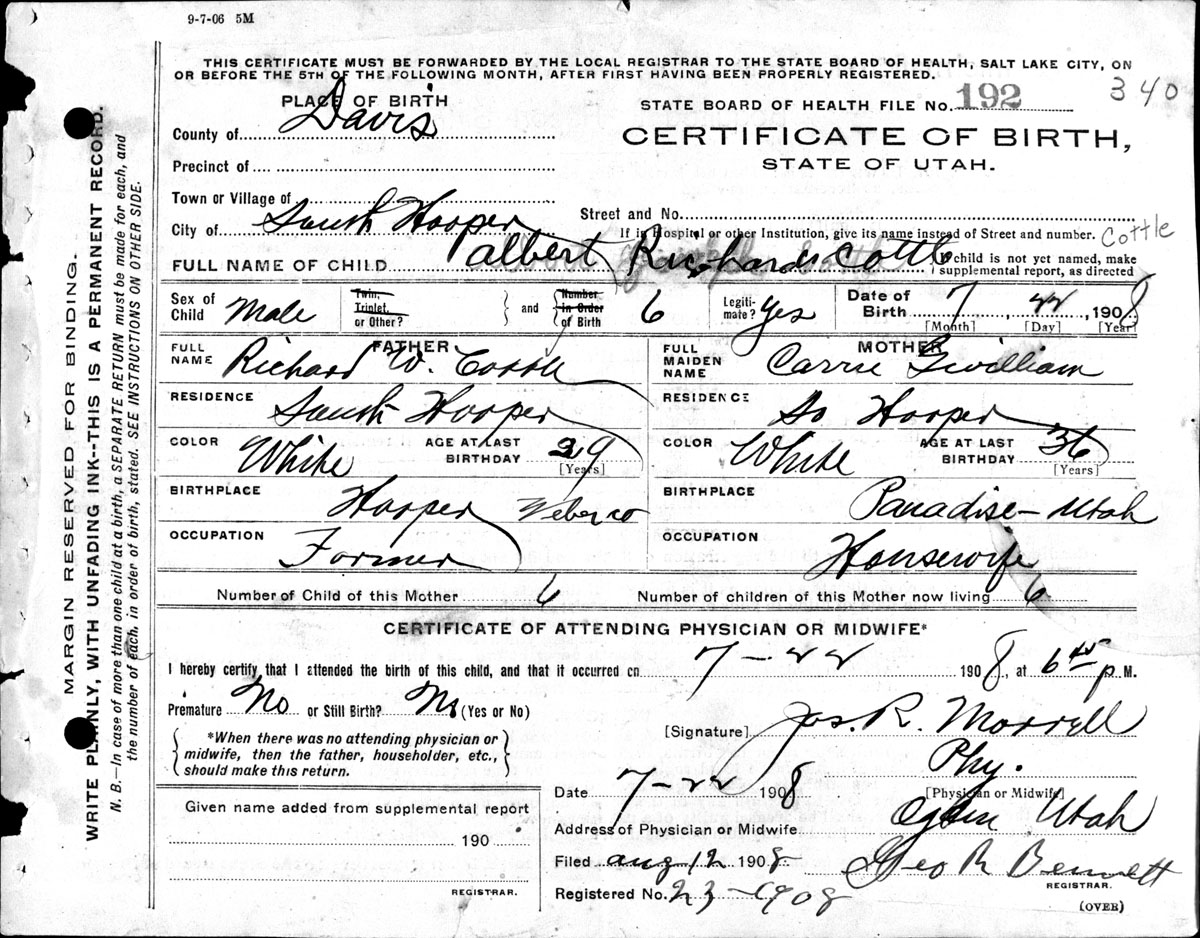 9-7-06 5M
THIS CERTIFICATE MUST BE FORWARDED BY THE LOCAL REGISTRAR TO THE STATE BOARD OF HEALTH, SALT LAKE CITY, ON
OR BEFORE THE 5TH OF THE FOLLOWING MONTH, AFTER FIRST HAVING BEEN PROPERLY REGISTERED.
340
PLACE OF BIRTH
STATE BOARD OF HEALTH FILE NO. 192
County of Davis
CERTIFICATE OF BIRTH,
STATE OF UTAH.
Precinct of
Town or Village of
Street and No.
City of South Hooper
If in Hospital or other Institution, give its name instead of Street and number.
Cottle
FULL NAME OF CHILD Albert Richards Cottle
If child is not yet named, make
supplemental report, as directed
Sex of Child Male
Twin, Triplet, or Other?
and
Number in Order of Birth 6
Legiti-mate? Yes
Date of Birth 7, 22, 1908
[Month] [Day] [Year]
FATHER
FULL NAME Richard W. Cottle
RESIDENCE South Hooper
COLOR White
AGE AT LAST BIRTHDAY 39
[Years]
BIRTHPLACE Hooper Weber co
OCCUPATION Farmer
MOTHER
FULL MAIDEN NAME Carrie Gwilliam
RESIDENCE So Hooper
COLOR White
AGE AT LAST BIRTHDAY 36
[Years]
BIRTHPLACE Paradise - Utah
OCCUPATION Housewife
Number of Child of this Mother 6
Number of children of this Mother now living 6
CERTIFICATE OF ATTENDING PHYSICIAN OR MIDWIFE*
I hereby certify that I attended the birth of this child, and that it occurred on 7-22 1908, at 6 45 P M.
Premature No or Still Birth? No (Yes or No)
*When there was no attending physician or
midwife, then the father, householder, etc.,
should make this return.
[Signature] Jos. R. Morrell
Phy.
[Physician or Midwife]
Date 7-22 1908
Address of Physician or Midwife Ogden Utah
Filed Aug 12 1908
Geo R Bennett
REGISTRAR.
Registered No. 23-1908
(OVER)
Given name added from supplemental report
190
REGISTRAR.
MARGIN RESERVED FOR BINDING.
WRITE PLAINLY, WITH UNFADING INK--THIS IS A PERMANENT RECORD.
N. B.—In case of more than one child at a birth, a SEPARATE RETURN must be made for each, and
the number of each, in order of birth, stated. SEE INSTRUCTIONS ON OTHER SIDE.